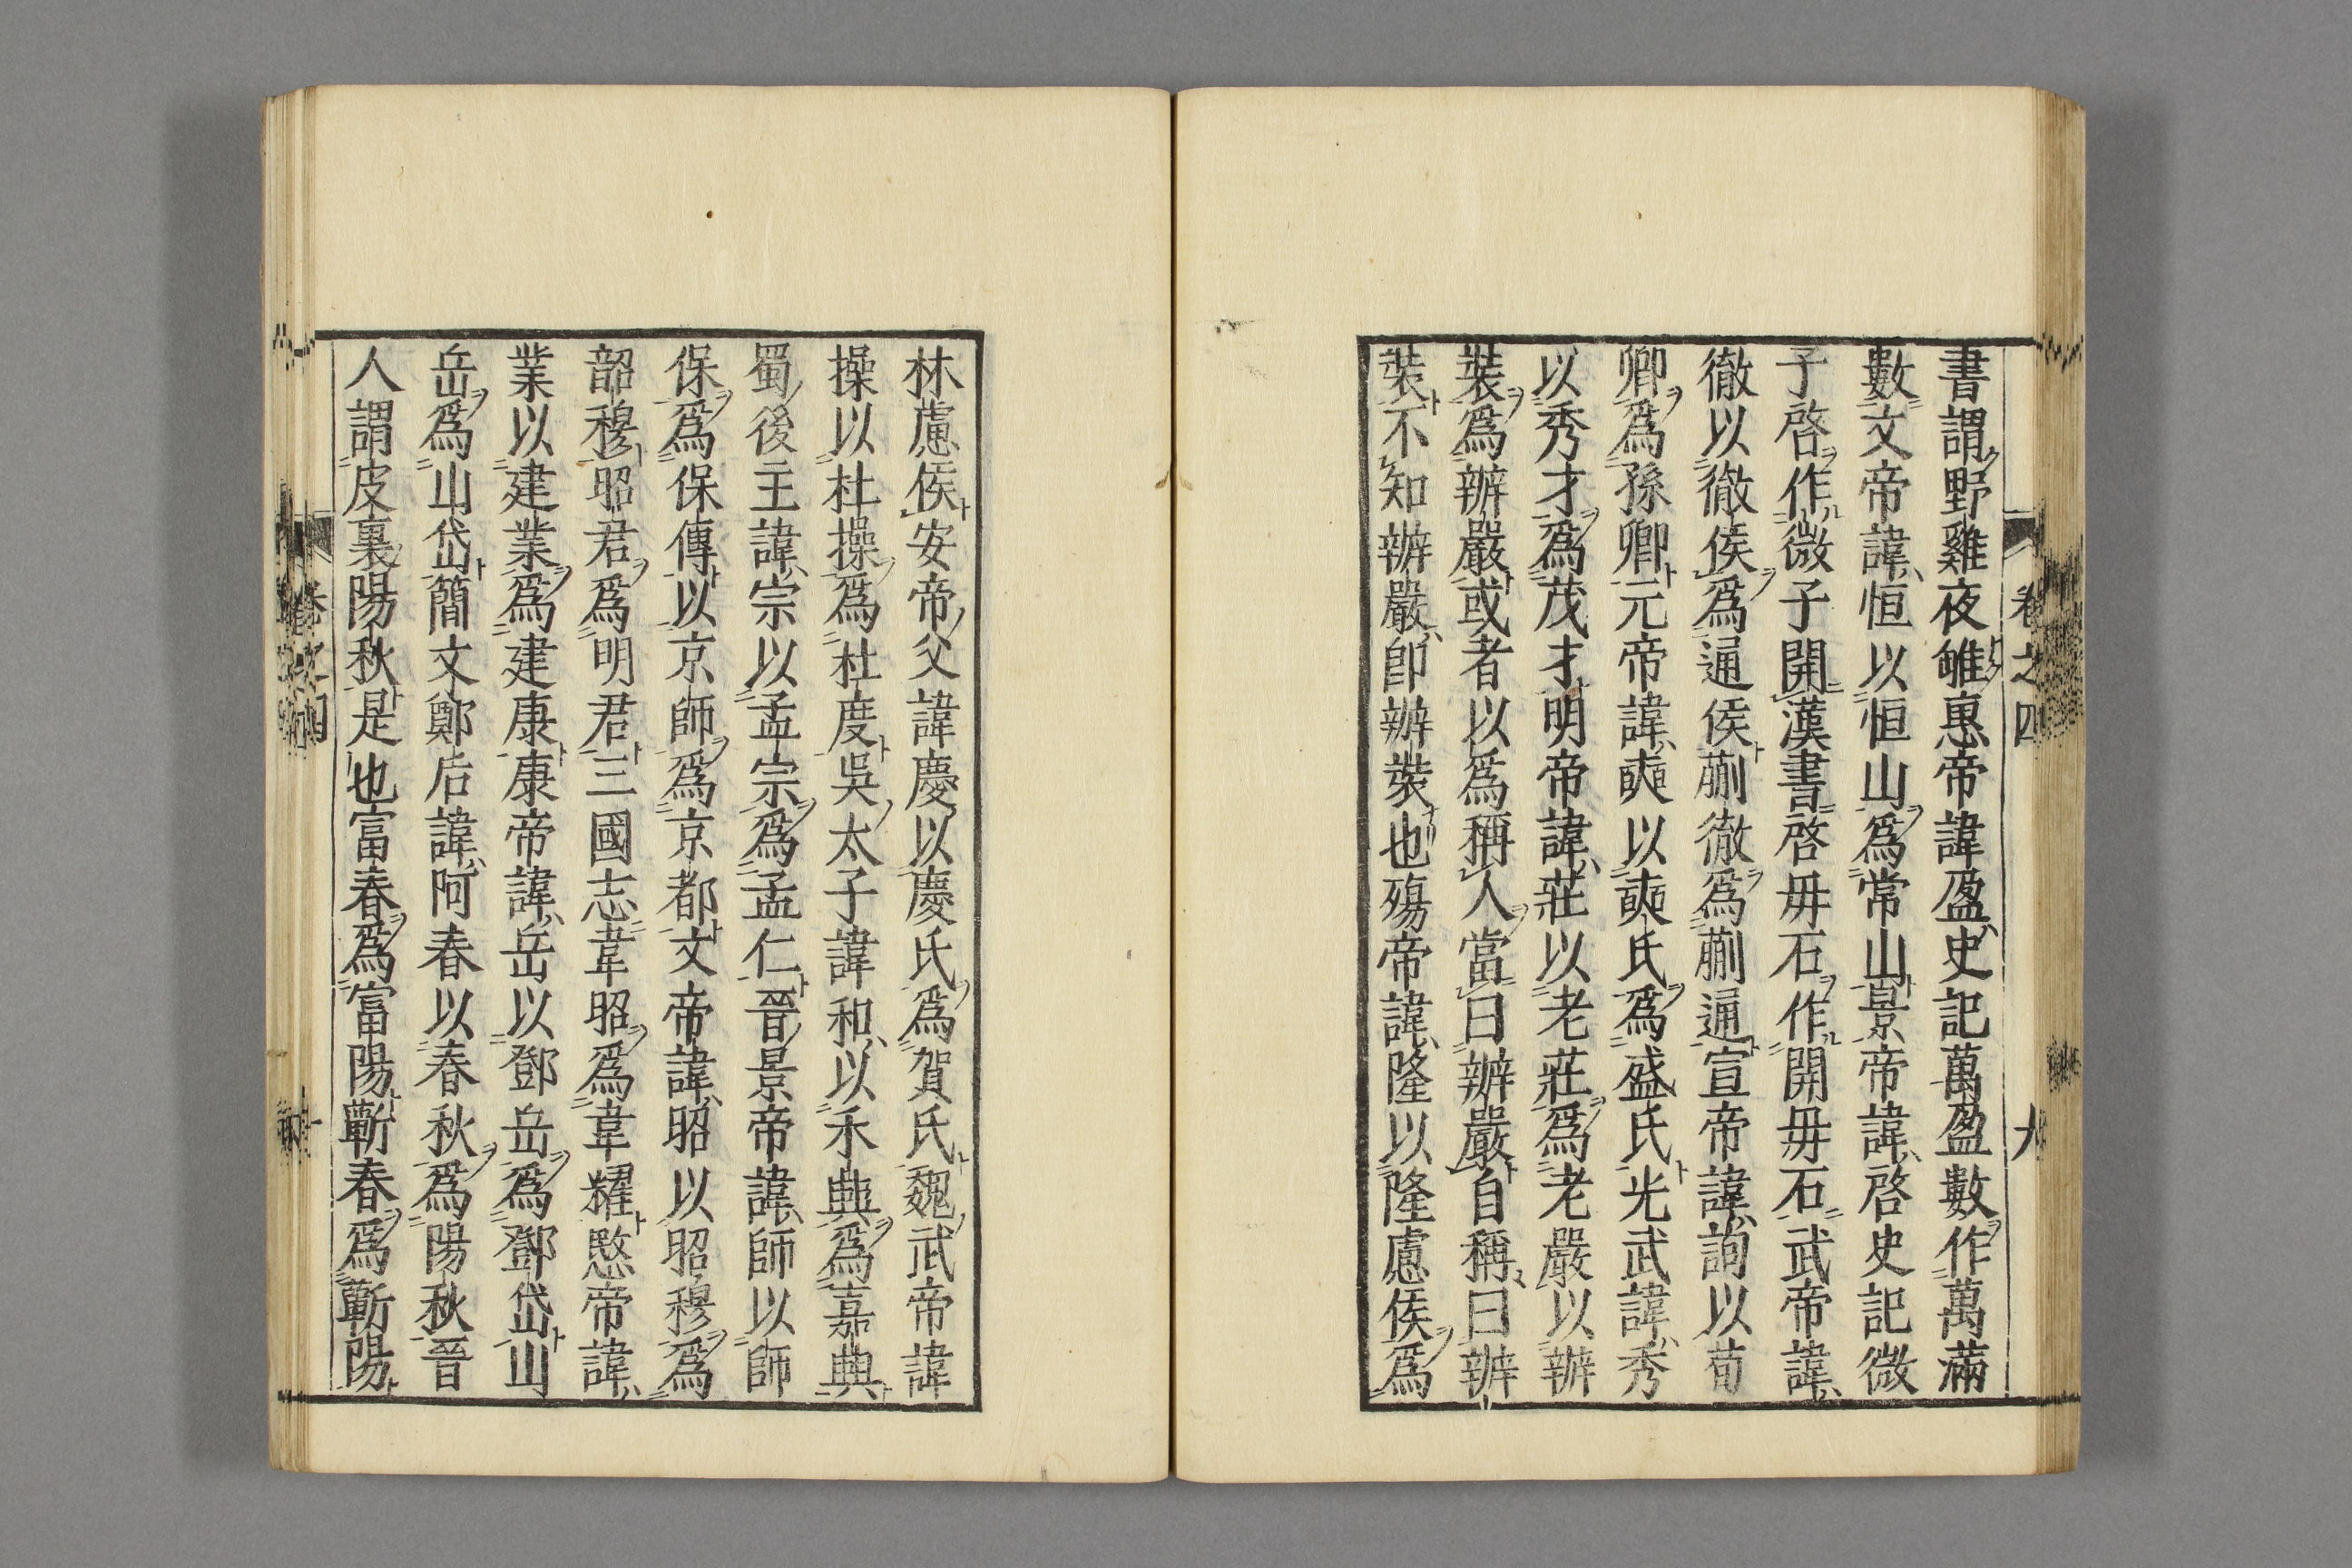 書謂野雞夜雊惠帝諱盈史記萬盈數作萬滿
數文帝諱恒以恒山爲常山景帝諱啓史記微
子啓作微子開漢書啓母石作開母石武帝諱
徹以徹侯爲通侯蒯徹爲蒯通宣帝諱詢以荀
卿爲孫卿元帝諱奭以奭氏爲盛氏光武諱秀
以秀才爲茂才明帝諱莊以老莊爲老嚴以辦
裝爲辦嚴或者以爲稱人當曰辦嚴自稱曰辦
裝不知辦嚴卽辦裝也殤帝諱隆以隆慮侯爲
林慮侯安帝父諱慶以慶氏爲賀氏魏武帝諱
操以杜操爲杜度吳太子諱和以禾興爲嘉興
蜀後主諱宗以孟宗爲孟仁晉景帝諱師以師
保爲保傳以京師爲京都文帝諱昭以昭穆爲
韶穆昭君爲明君三國志韋昭爲韋耀愍帝諱
業以建業爲建康康帝諱岳以鄧岳爲鄧岱山
岳爲山岱簡文鄭后諱阿春以春秋爲陽秋晉
人謂皮裏陽秋是也富春爲富陽蘄春爲蘄陽
卷之四
九
卷之四
十